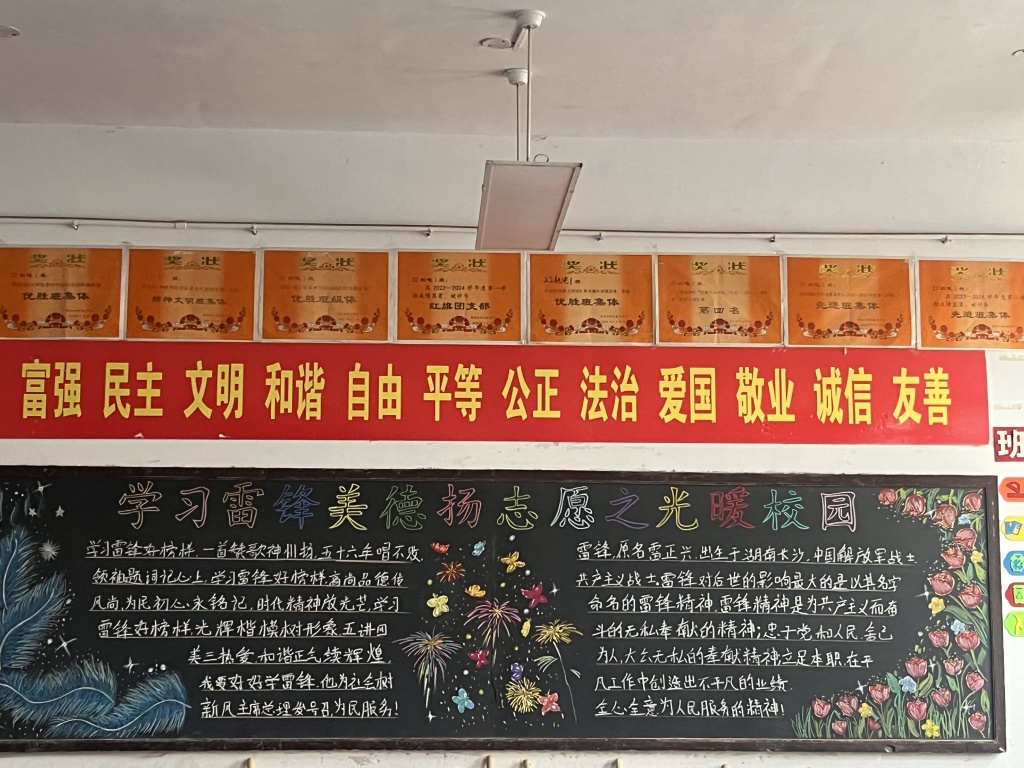 奖状
优胜班集体
奖状
精神文明班集体
奖状
优胜班级体
奖状
在2023—2024学年度第一学
红旗团支部
奖状
优胜班集体
奖状
第四名
奖状
先进班集体
奖状
在2023—2024学年度第二
先进班集体
富强 民主 文明 和谐 自由 平等 公正 法治 爱国 敬业 诚信 友善
班
学习雷锋美德扬志愿之光暖校园
学习雷锋好榜样,一首铁歌神州扬,五十六年唱不败
领袖题词记心上,学习雷锋好榜样高尚品德传
风尚,为民初心永铭记,时代精神放光芒,学习
雷锋好榜样,光辉楷模树形象五讲四
美三热爱,和谐正气续辉煌
我要好好学雷锋,他为社会树
新风主席总理发号召为民服务!
雷锋,原名雷正兴,出生于湖南长沙,中国解放军战士
共产主义战士雷锋对后世的影响最大的是以其名字
命名的雷锋精神,雷锋精神是为共产主义而奋
斗的无私奉献的精神;忠于党和人民,舍己
为人,大公无私的奉献精神;立足本职,在平
凡工作中创造出不平凡的业绩
全心全意为人民服务的精神!